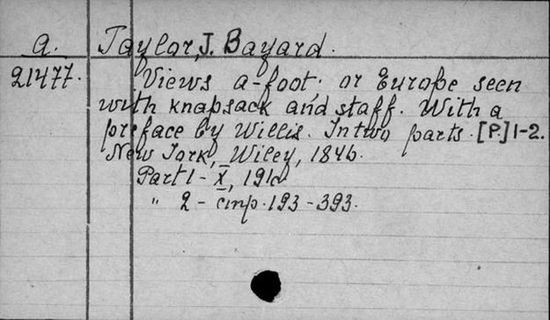 a. Taylor, J. Bayard.
21477. Views a-foot; or Europe seen
with knapsack and staff. With a
preface by Willis. In two parts. [P.] 1-2.
New York, Wiley, 1846.
Part 1 - X, 191c
" 2 - стр. 193-393.